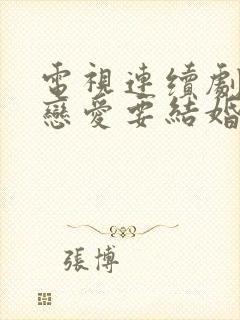 電視連續劇
戀愛要結婚
張博